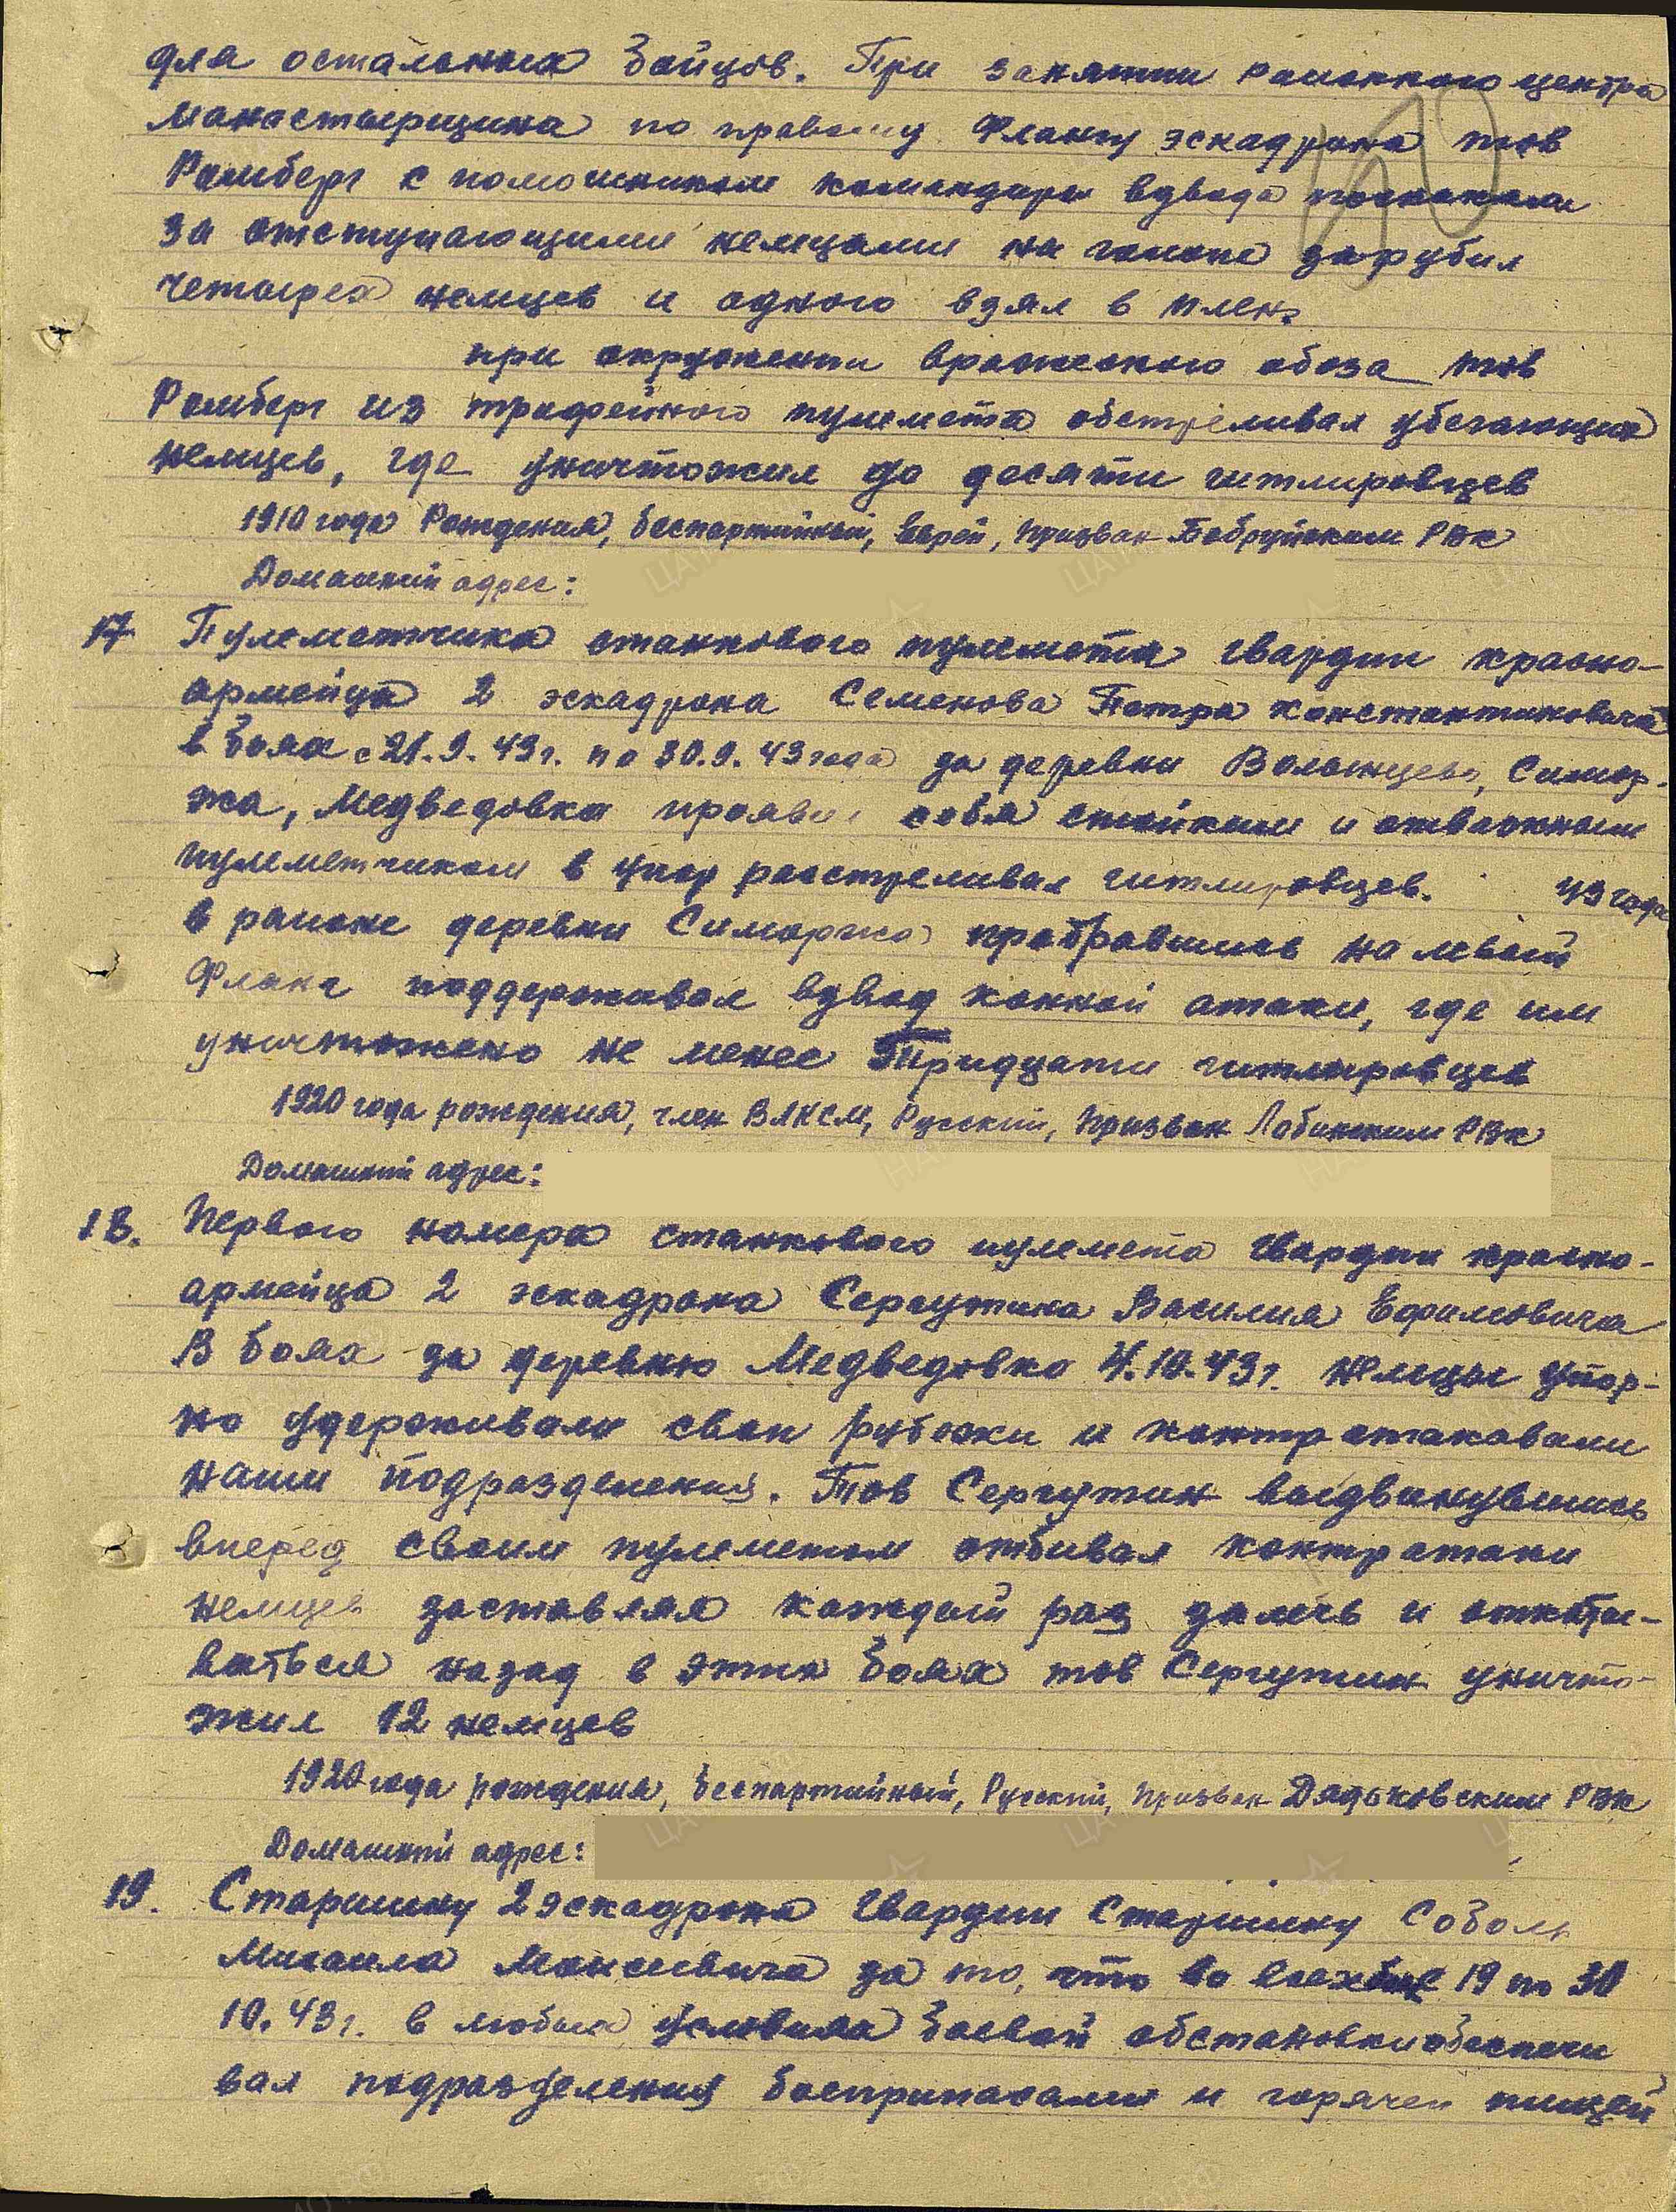 для остальных бойцов. При занятии районного центра
Монастырщина по правому флангу эскадрона тов
Рамберг с помошником командира взвода поскакали
за отступающими немцами на галопе зарубил
четырех немцев и одного взял в плен.
при окружении вражеского обоза тов
Рамберг из трофейного пулемета обстреливал убегающих
немцев, где уничтожил до десяти гитлировцев
1910 года Рождения, беспартийный, еврей, призван Бобруйским РВК
Домашний адрес:
17 Пулеметчика станкового пулемета гвардии красно-
армейца 2 эскадрона Семенова Петра Константиновича
в боях с 21.9.43г. по 30.9.43 года за деревни Волынцево, Симор-
жа, Медведовка проявил себя стойким и отважным
пулеметчиком в упор расстреливал гитлировцев. 43 года
в районе деревни Симоржа пробравшись на левый
фланг поддерживал взвод конной атаки, где им
уничтожено не менее Тридцати гитлировцев
1920 года рождения, член ВЛКСМ, Русский, призван Лабинским РВК
Домашний адрес:
18. Первого номера станкового пулемета гвардии красно-
армейца 2 эскадрона Сергутина Василия Ефимовича
В боях за деревню Медведовка 4.10.43г. немцы упор-
но удерживали свои рубежи и контратаковали
наши подразделения. Тов Сергутин выдвинувшись
вперед своим пулеметом отбивал контратаки
немцев заставлял каждый раз залечь и откаты-
ваться назад в этих боях тов Сергутин уничто-
жил 12 немцев
1920 года рождения, беспартийный, Русский, призван Дядьковским РВК
Домашний адрес:
19. Старшину 2 эскадрона гвардии Старшину Соболь
Михаила Моисеевича за то, что во 19 по 30
10.43г. в любых условиях боевой обстановки обеспечи
вал подразделения боеприпасами и горячей пищей